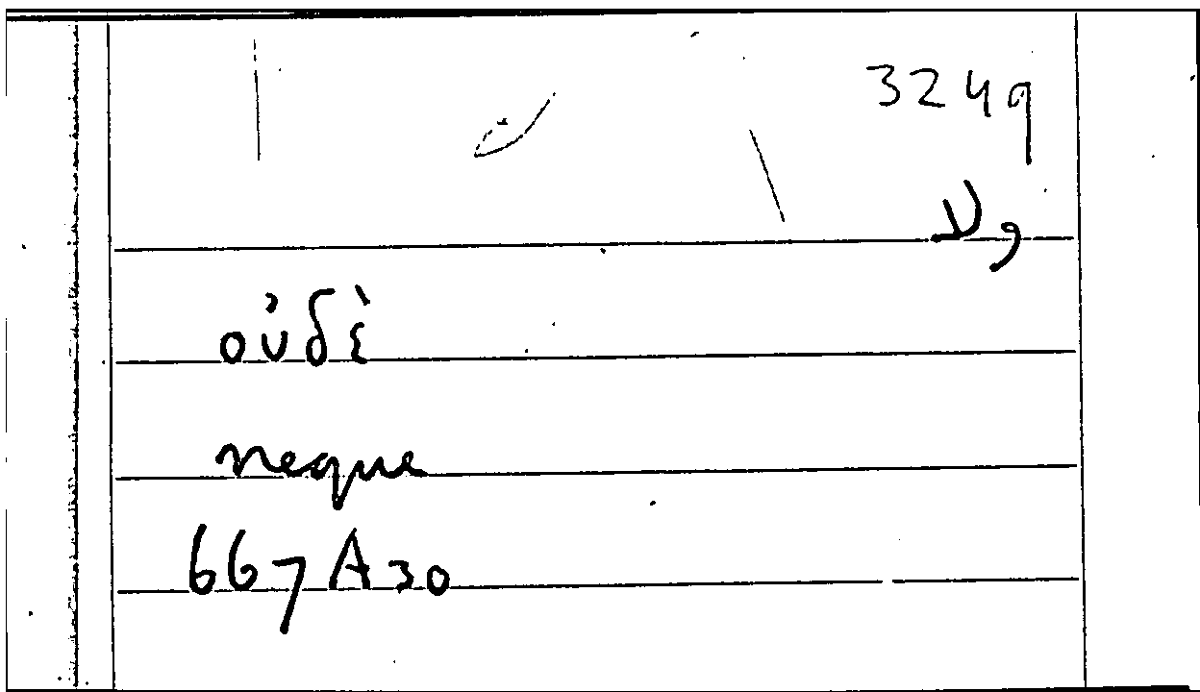 3249
ولا
οὐδὲ
neque
667 A 30